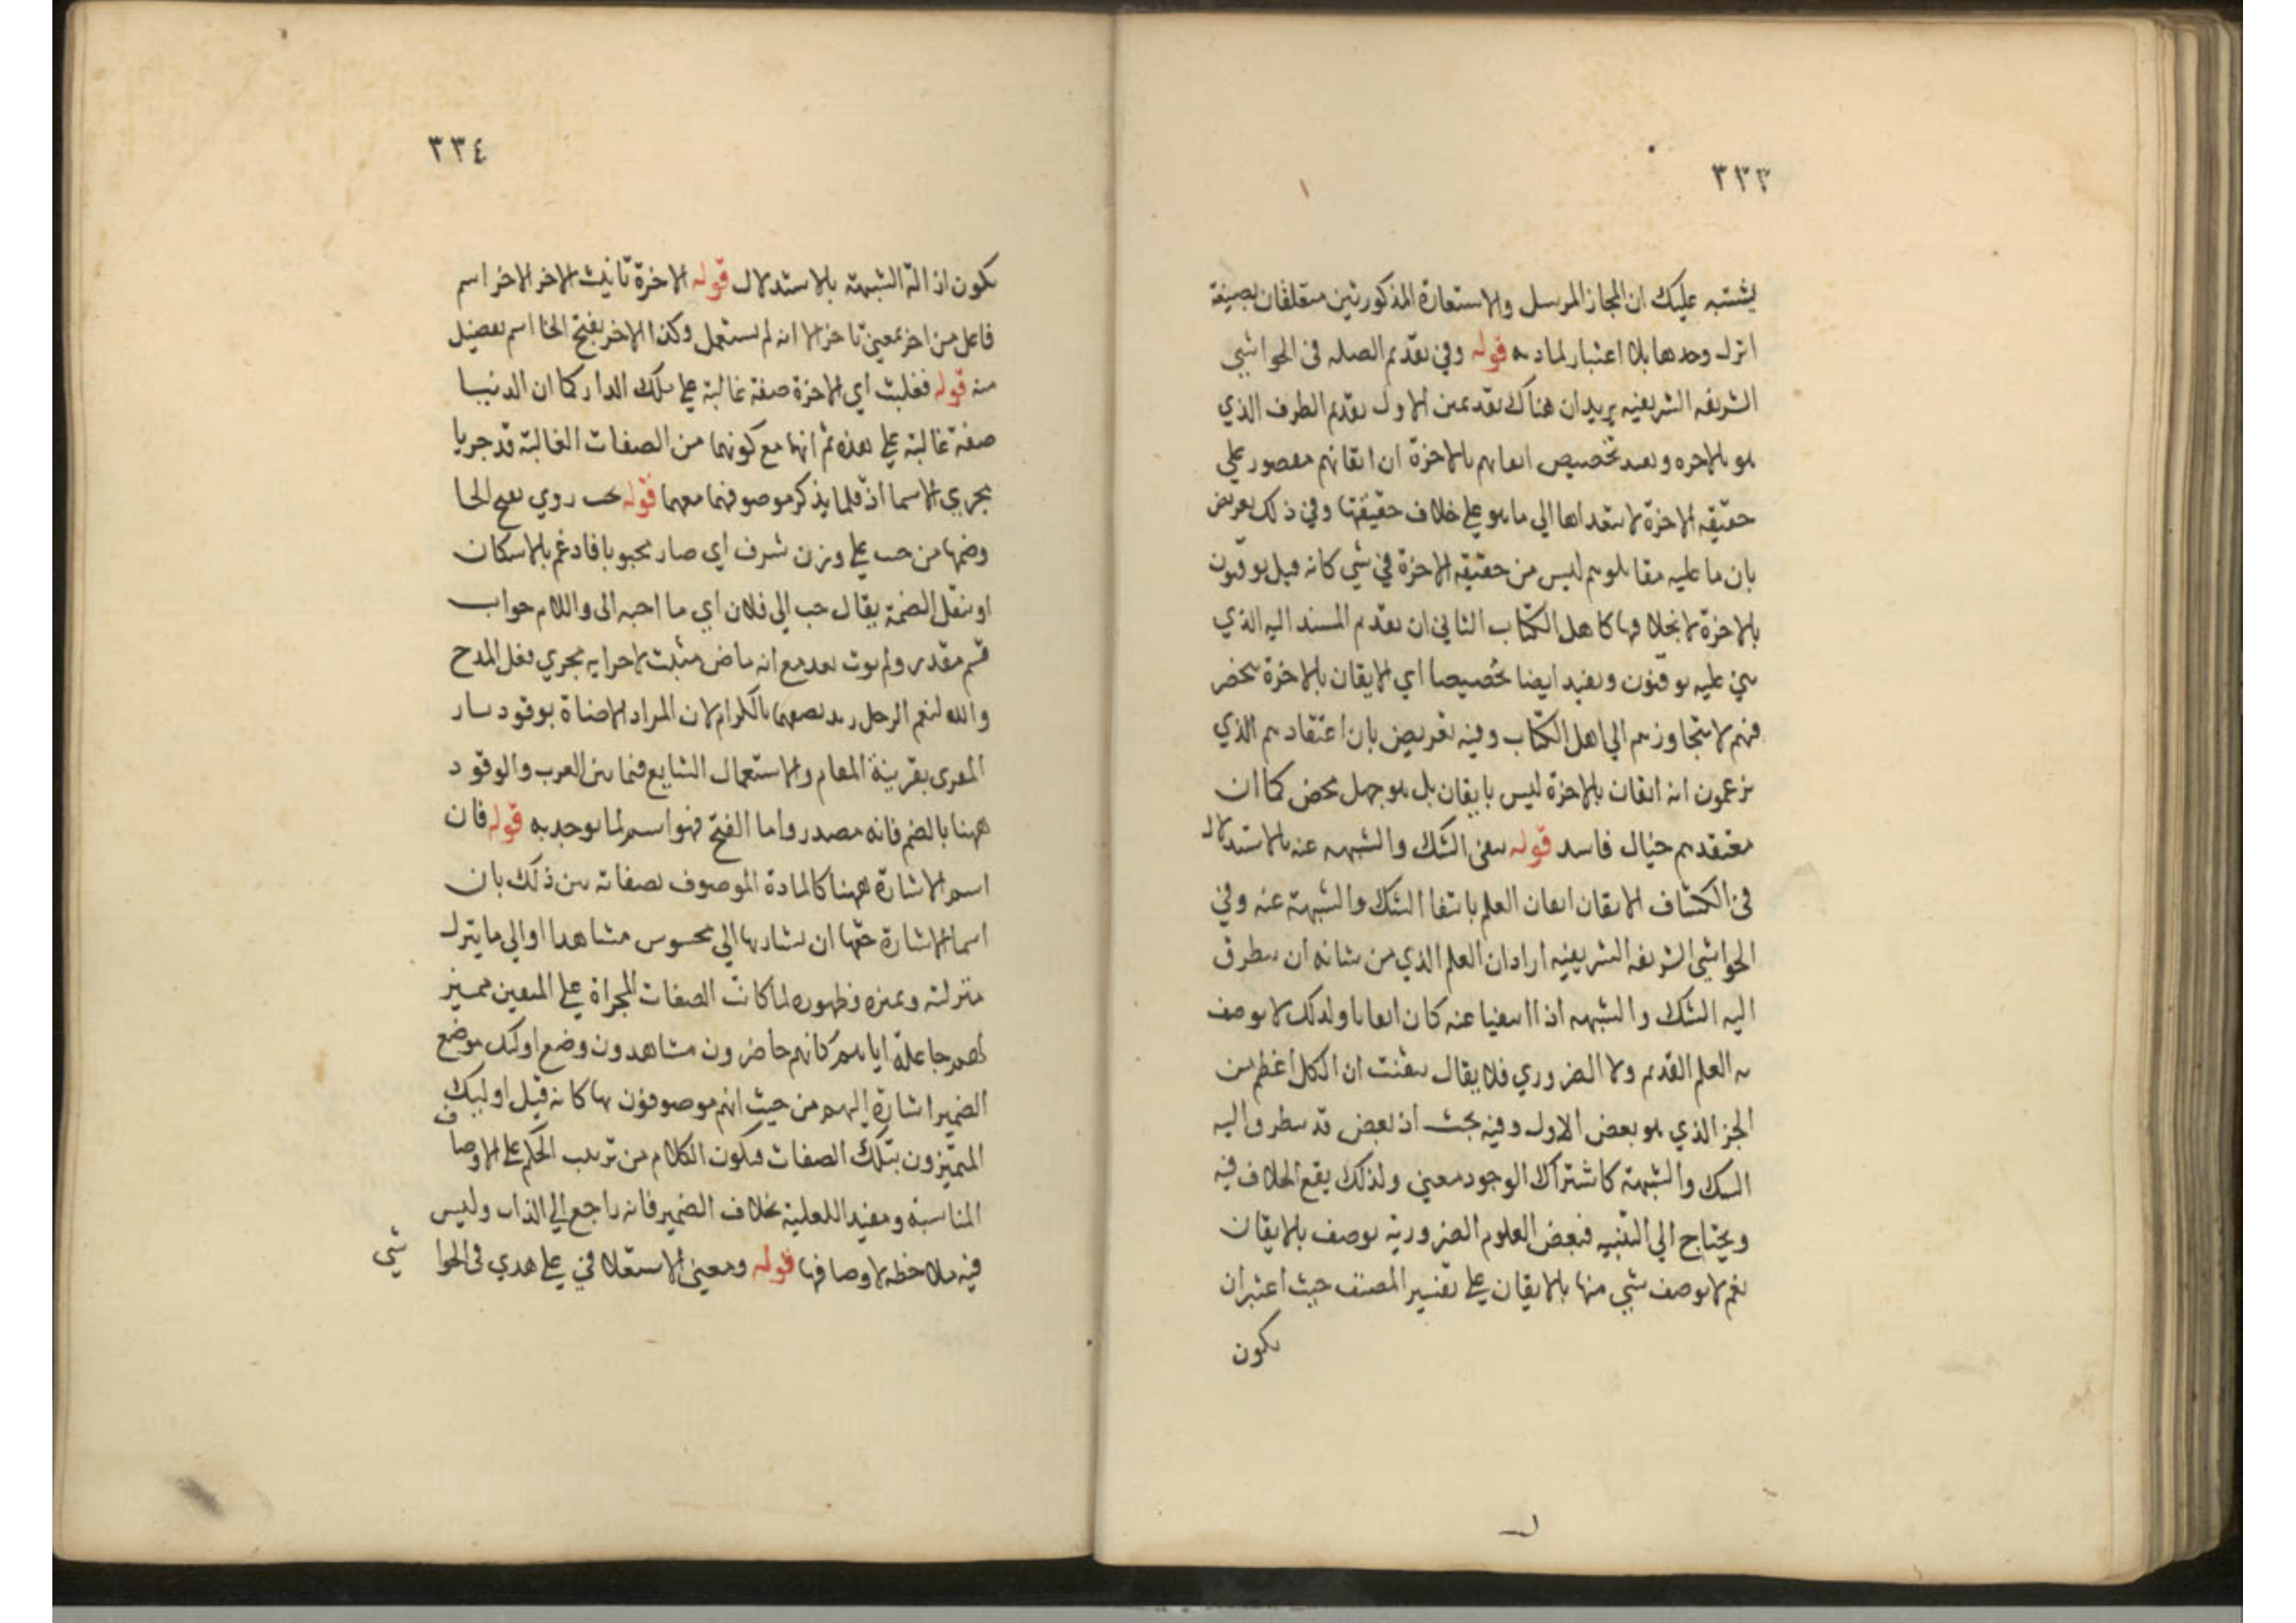 ٣٣٣
يشتبه عليك ان المجاز المرسل والاستعارة المذكورتين متعلقان بصيغة
انزل وحدها بلا اعتبار لمادته قوله وفي تقديم الصله في الحواشي
الشريفه الشريفيه يريد ان هناك تقديمين الاول تقديم الظرف الذي
هو بالاخره ويفيد تخصيص ايقانهم بالاخرة ان ايقانهم مقصور علي
حقيقه الاخرة لا يتعداها الي ما هو علي خلاف حقيقتها وفي ذلك تعريض
بان ما عليه مقابلوهم ليس من حقيقه الاخرة في شي كانه قيل يوقنون
بالاخرة لا بخلافها كاهل الكتاب الثاني ان تقديم المسند اليه الذي
بني عليه يوقنون ويفيد ايضا تخصيصا اي الايقان بالاخرة منحصر
فيهم لا يتجاوزهم الي اهل الكتاب وفيه تعريض بان اعتقادهم الذي
يزعمون انه ايقان بالاخرة ليس بايقان بل هو جهل محض كما ان
معتقدهم خيال فاسد قوله بنفي الشك والشبهه عنه بالاستدلال
في الكشاف الايقان اتقان العلم بانتفا الشك والشبهة عنه وفي
الحواشي الشريفه الشريفيه اراد ان العلم الذي من شانه ان يتطرق
اليه الشك والشبهه اذا انتفيا عنه كان ايقانا ولذلك لا يوصف
به العلم القديم ولا الضروري فلا يقال تيقنت ان الكل اعظم من
الجز الذي هو بعض الاول وفيه بحث اذ بعض قد يتطرق اليه
الشك والشبهة كاشتراك الوجود معني ولذلك يقع الخلاف فيه
ويحتاج الي التنبيه فبعض العلوم الضرورية يوصف بالايقان
نعم لا يوصف شي منها بالايقان علي تفسير المصنف حيث اعتبر ان
يكون
٣٣٤
يكون ازالة الشبهة بالاستدلال قوله الاخرة تانيث الاخر الاخر اسم
فاعل من اخر بمعني تاخر الا انه لم يستعمل وكذا الاخر بفتح الخا اسم تفضيل
منه قوله فغلبت اي الاخرة صفة غالبة علي تلك الدار كما ان الدنيا
صفة غالبة علي هذه ثم انها مع كونهما من الصفات الغالبة قد جريا
مجري الاسما اذ قلما يذكر موصوفهما معهما قوله لحب روي بفتح الحا
وضمها من حب علي وزن شرف اي صار محبوبا فادغم بالاسكان
او بنقل الضمة يقال حب الي فلان اي ما احبه الي واللام جواب
قسم مقدر ولم يوت بقد مع انه ماض مثبت لاجرايه مجري فعل المدح
والله لنعم الرجل زيد يصفهما بالكرم لان المراد الاضاة بوقود نار
القري بقرينة المقام والاستعمال الشايع فيما بين العرب والوقود
ههنا بالضم فانه مصدر واما الفتح فهو اسم لما يوقد به قوله فان
اسم الاشارة ههنا كالمادة الموصوف بصفاته بين ذلك بان
اسما الاشارة حقها ان يشار بها الي محسوس مشاهدا او الي ما ينزل
منزلته وتميزه وظهوره لما كانت الصفات المجراة علي المتقين مميز
لهم جاعلة اياهم كانهم حاضرون مشاهدون وضع اوليك موضع
الضمير اشارة اليهم من حيث انهم موصوفون بها كانه قيل اوليك
المتميزون بتلك الصفات فيكون الكلام من ترتيب الحكم علي الاوصاف
المناسبة ومفيدا للعلية بخلاف الضمير فانه راجع الي الذات وليس
فيه ملاحظة لاوصافها قوله ومعني الاستعلا في علي هدي في الحواشي